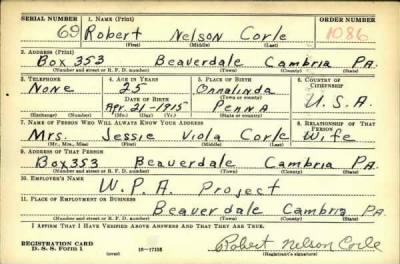 SERIAL NUMBER 1. NAME (Print) ORDER NUMBER
69 Robert Nelson Corle 1086
(First) (Middle) (Last)
2. ADDRESS (Print)
Box 353 Beaverdale Cambria PA.
(Number and street or R. F. D. number) (Town) (County) (State)
3. TELEPHONE 4. AGE IN YEARS 5. PLACE OF BIRTH 6. COUNTRY OF CITIZENSHIP
None 25 Onnalinda
DATE OF BIRTH (Town or county) U.S.A.
Apr. 21-1915 Penna
(Exchange) (Number) (Mo.) (Day) (Yr.) (State or country)
7. NAME OF PERSON WHO WILL ALWAYS KNOW YOUR ADDRESS 8. RELATIONSHIP OF THAT PERSON
Mrs. Jessie Viola Corle Wife
(Mr., Mrs., Miss) (First) (Middle) (Last)
9. ADDRESS OF THAT PERSON
Box 353 Beaverdale Cambria PA.
(Number and street or R. F. D. number) (Town) (County) (State)
10. EMPLOYER'S NAME
W.P.A. Project
11. PLACE OF EMPLOYMENT OR BUSINESS
Beaverdale Cambria PA.
(Number and street or R. F. D. number) (Town) (County) (State)
I AFFIRM THAT I HAVE VERIFIED ABOVE ANSWERS AND THAT THEY ARE TRUE.
REGISTRATION CARD
D. S. S. Form 1 (over) 16-17105 Robert Nelson Corle
(Registrant's signature)